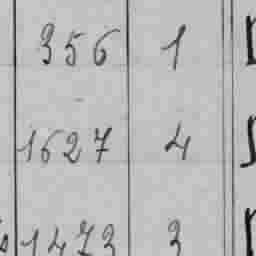 356 1
1627 4
1473 3